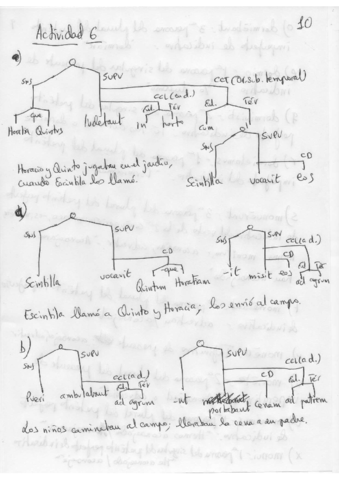 10
Actividad 6
a)
SUPV
CCT (Or. s. b. temporal)
Sujs
CCL (a.d.)
-que
Ed. Tér
Ed. Tér
Horatia Quintus
ludebant
in horto
cum
SUPV
Suj
CD
Horacia y Quinto jugaban en el jardín,
cuando Escintila los llamó.
Scintilla vocavit eos
d)
SUPV
SUPV
CD
CCL (a.d.)
CD
-que
Scintilla vocavit Quintum Horatiam
-it misit eos ad agrum
Escintila llamó a Quinto y Horacia; los envió al campo.
b)
SUPV
SUPV
CCL (a.d.)
CCL (a.d.)
CD
Pueri ambulabant ad agrum
-nt portabant Cenam ad patrem
Los niños caminaban al campo; llevaban la cena a su padre.